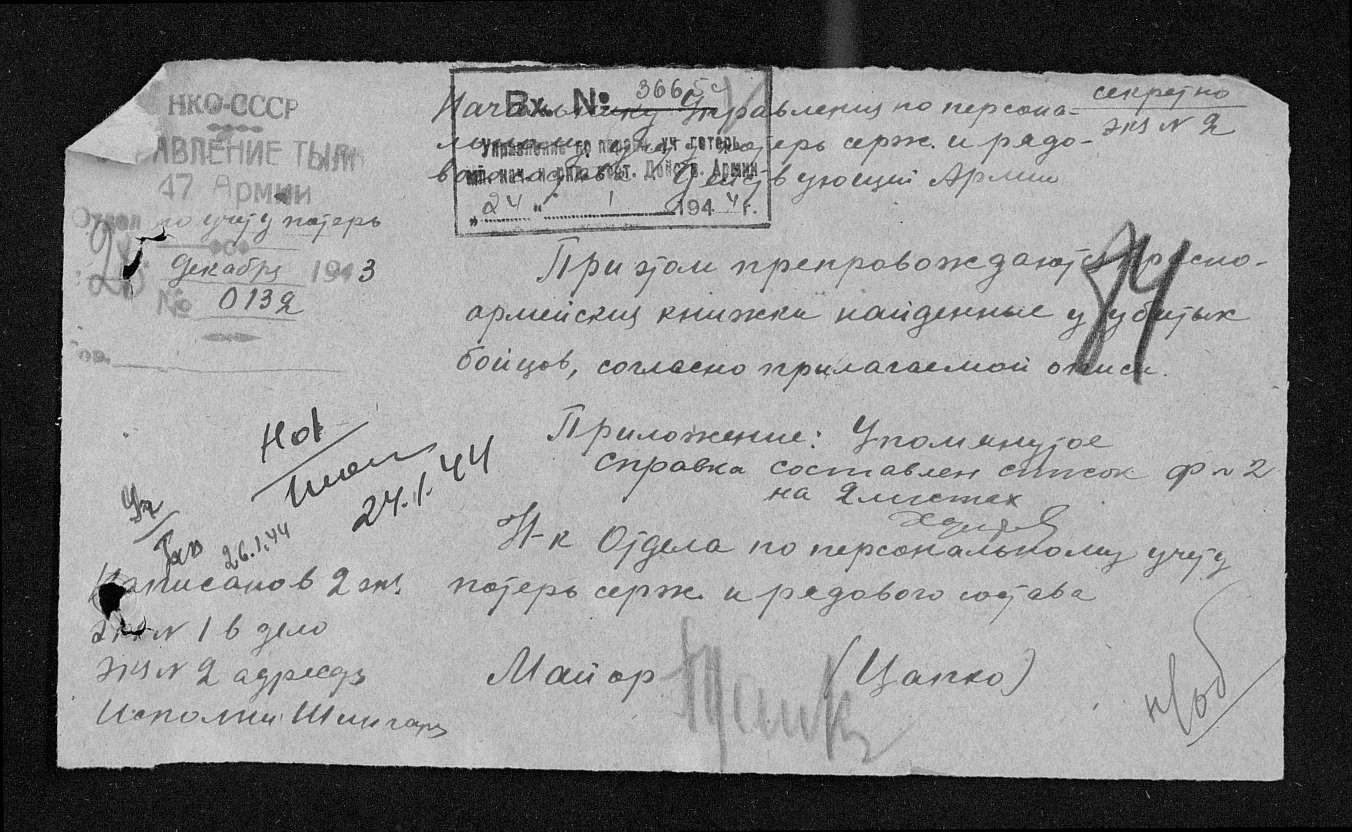 НКО-СССР
УПРАВЛЕНИЕ ТЫЛА
47 Армии
Отдел по учету потерь
28 декабря 1943
№ 0132
Гор.
Вх. №: 3665с
Управление по персон. уч. потерь
мл. нач. и ряд. сост. Действ. Армии
„24“ 1 1944 г.
секретно
экз N 2
Начальнику Управления по персона-
льному учету потерь серж. и рядо-
вого состава Действующей Армии
При этом препровождаются красно-
армейский книжки найденные у убитых
бойцов, согласно прилагаемой описи.
74
Приложение: Упомянутое
справка составлен список ф N 2
на 2 листах
Н-к Отдела по персональному учету
потерь серж. и рядового состава
Майор (Цапко)
24.1.44
26.1.44
Написанов 2 экз.
экз N 1 в дело
экз N 2 адресату
Исполни